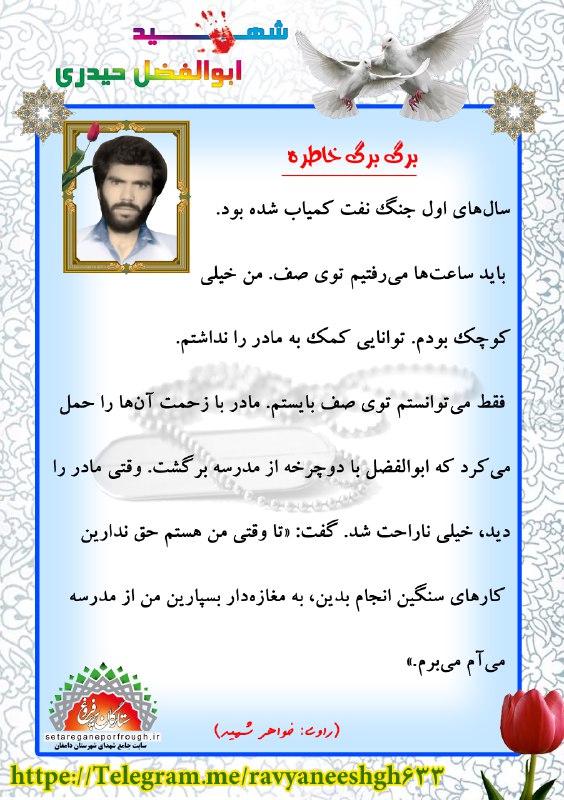 شهید
ابوالفضل حیدری
برگ برگ خاطره
سال‌های اول جنگ نفت کمیاب شده بود.
باید ساعت‌ها می‌رفتیم توی صف. من خیلی
کوچک بودم. توانایی کمک به مادر را نداشتم.
فقط می‌توانستم توی صف بایستم. مادر با زحمت آن‌ها را حمل
می‌کرد که ابوالفضل با دوچرخه از مدرسه برگشت. وقتی مادر را
دید، خیلی ناراحت شد. گفت: «تا وقتی من هستم حق ندارین
کارهای سنگین انجام بدین، به مغازه‌دار بسپارین من از مدرسه
می‌آم می‌برم.»
(راوی: خواهر شهید)
ستارگان پرفروغ
setareganeporfrough.ir
سایت جامع شهدای شهرستان دامغان
https://Telegram.me/ravyaneeshgh۶۳۳